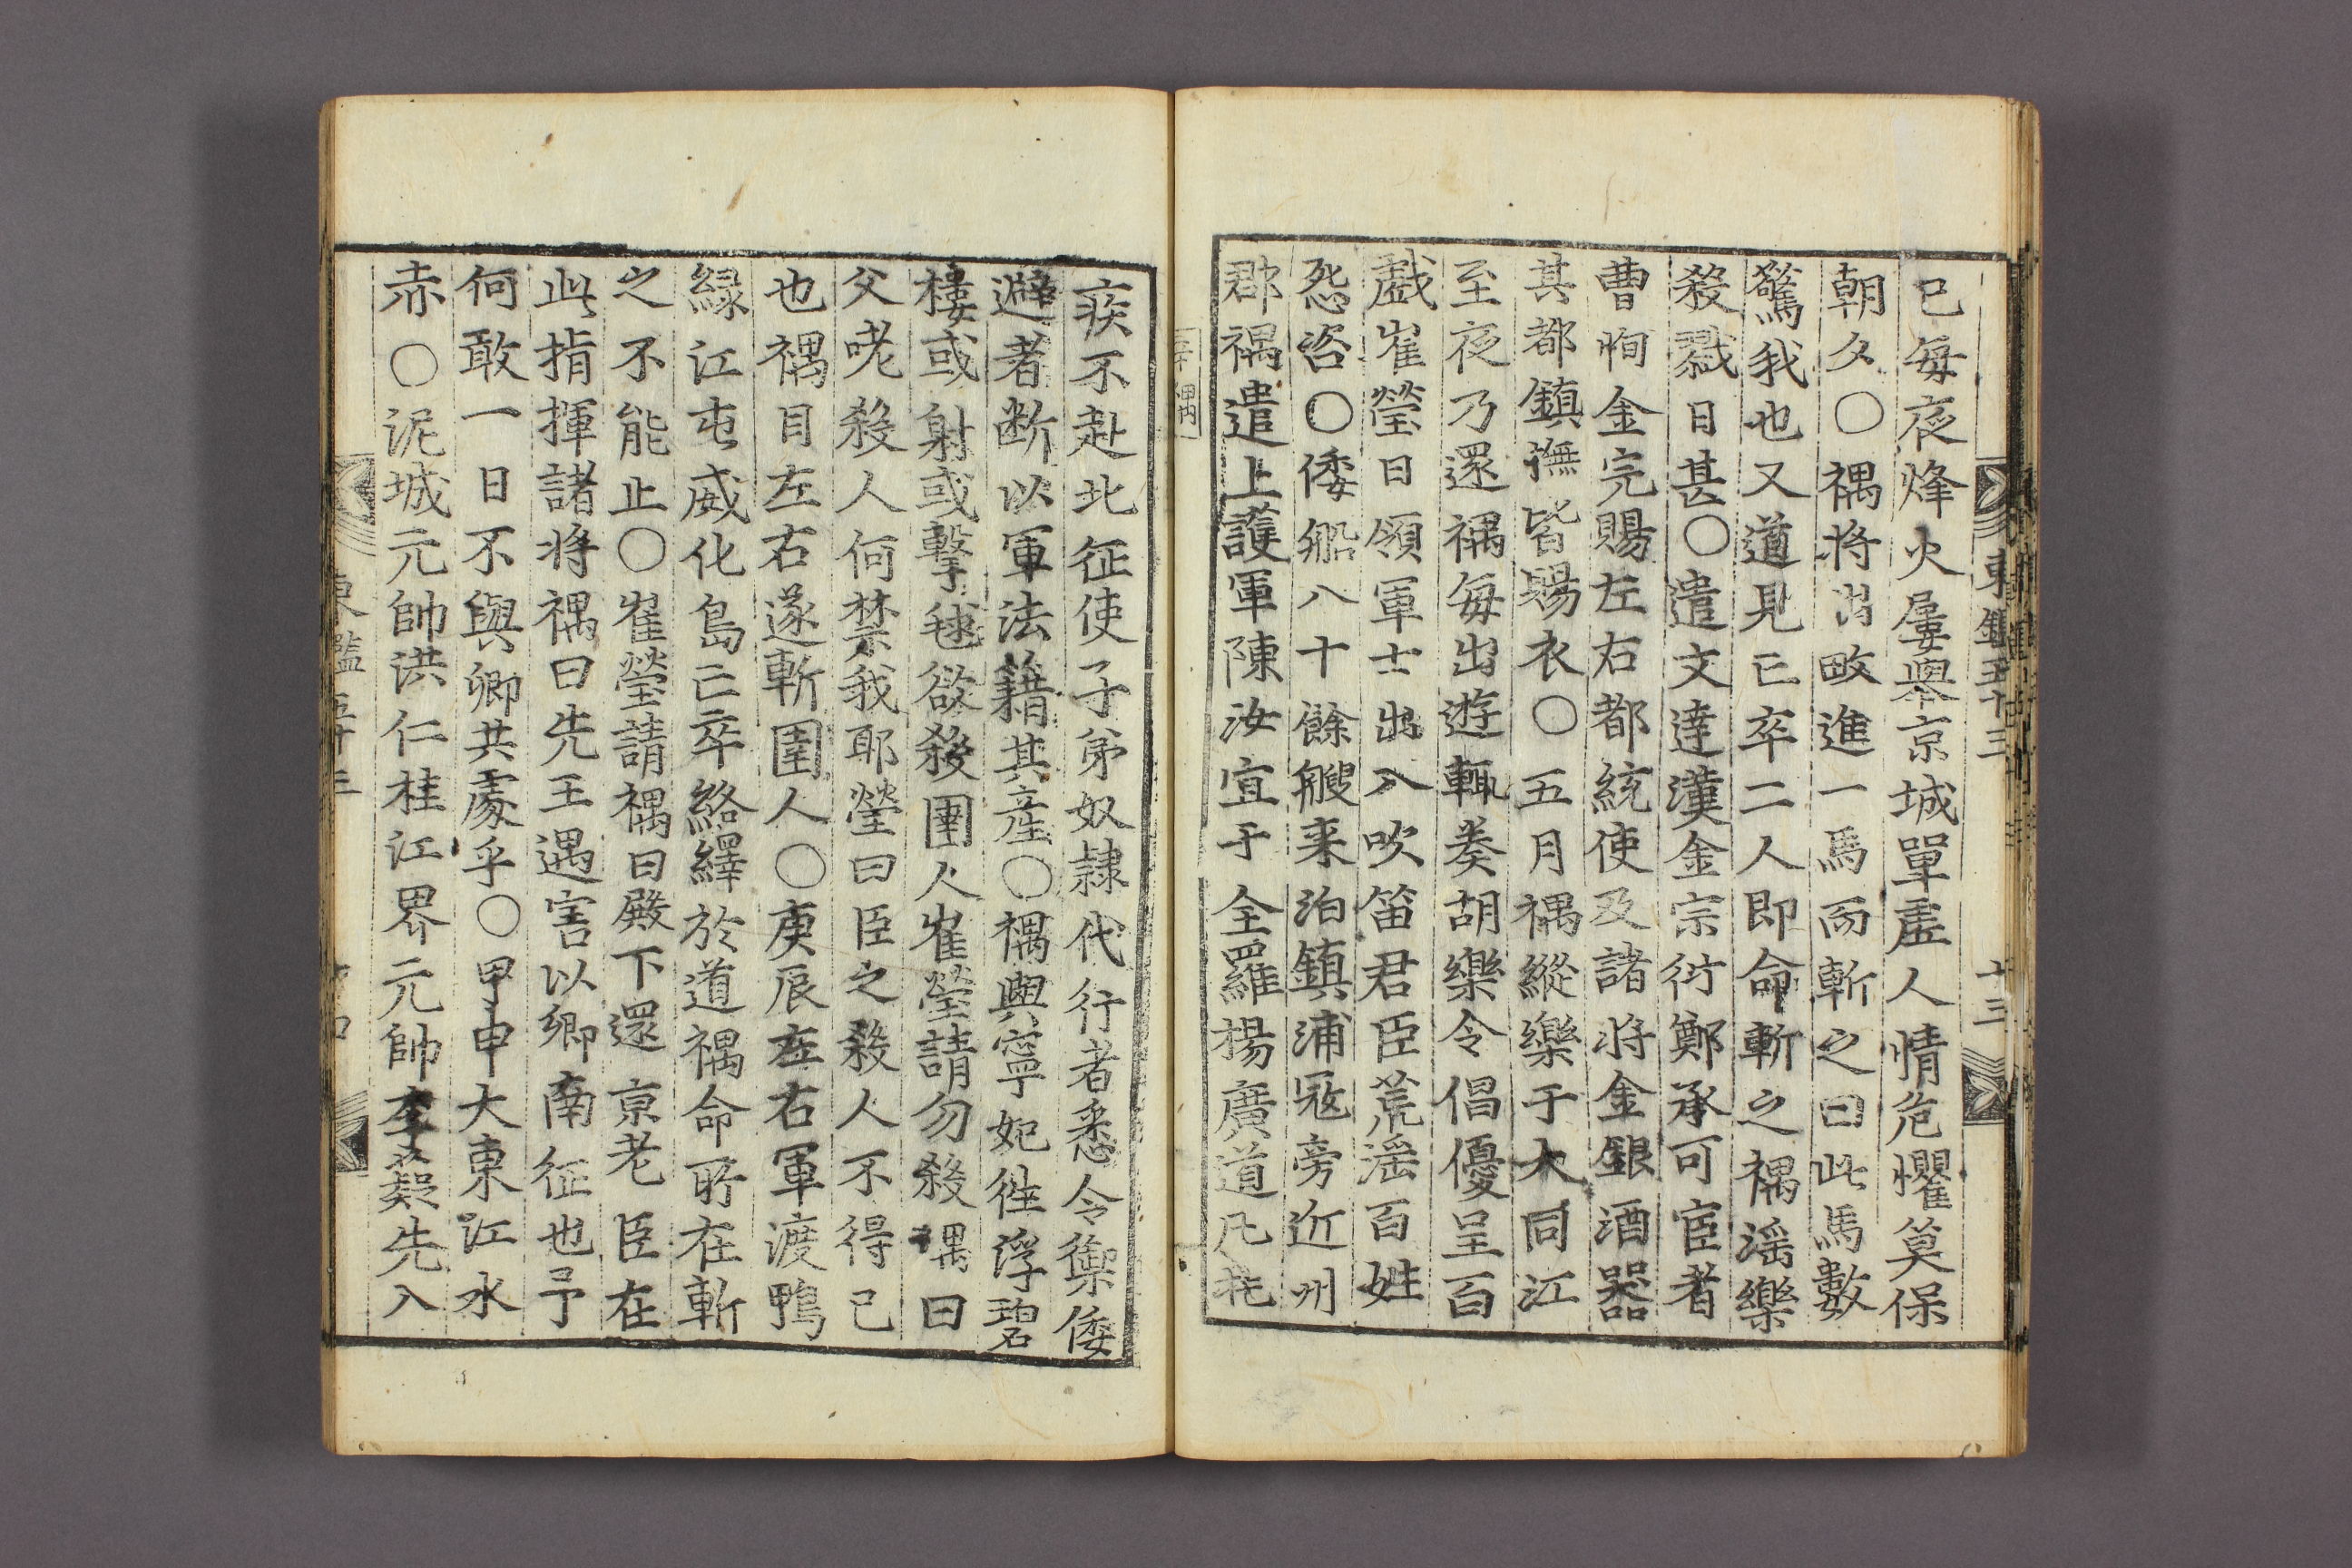 東鑑五十三
十三
已每夜烽火屢擧京城單虛人情危懼莫保
朝夕〇禑將出畋進一馬而斬之曰此馬數
驚我也又道見亡卒二人即命斬之禑滛樂
殺戮日甚〇遣文達漢金宗衍鄭承可宦者
曹恂金完賜左右都統使及諸將金銀酒器
其都鎮撫皆賜衣〇五月禑縱樂于大同江
至夜乃還禑每出遊輒奏胡樂令倡優呈百
戲崔瑩日領軍士出入吹笛君臣荒滛百姓
怨咨〇倭船八十餘艘來泊鎮浦冦旁近州
郡禑遣上護軍陳汝宜于全羅楊廣道凡托
辛禑
疾不赴北征使子弟奴隷代行者悉令禦倭
避者断以軍法籍其産〇禑與寧妃徃浮碧
樓或射或擊毬欲殺圉人崔瑩請勿殺禑曰
父咾殺人何禁我耶瑩曰臣之殺人不得已
也禑目左右遂斬圉人〇庚辰左右軍渡鴨
綠江屯威化島亡卒絡繹於道禑命所在斬
之不能止〇崔瑩請禑曰殿下還京老臣在
此指揮諸將禑曰先王遇害以卿南征也予
何敢一日不與卿共處乎〇甲申大東江水
赤〇泥城元帥洪仁桂江界元帥李薿先入
東鑑五十三